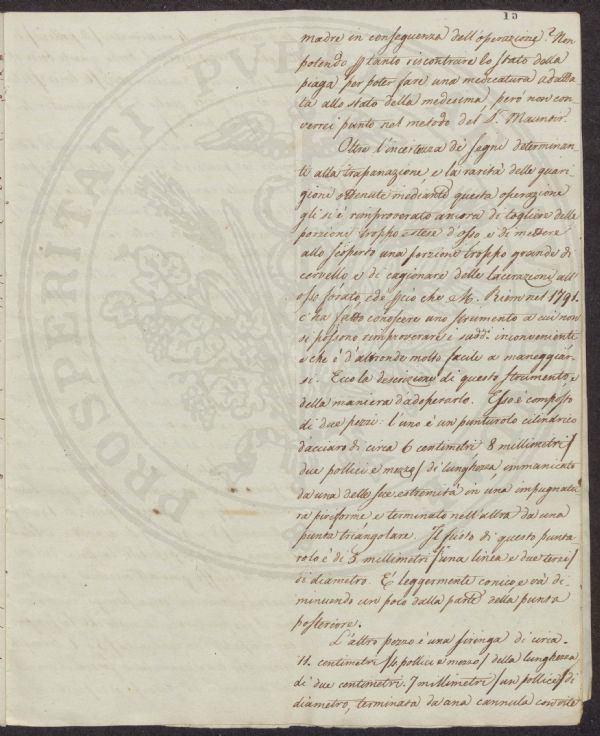 15
madre in conseguenza dell'operazione? Non
potendo ptanto riscontrare lo stato della
piaga per poter fare una medicatura adatta
ta allo stato della medesima, però non con-
verrei punto nel metodo del S. Maunoir.
Oltre l'incertezza de' segni determinan-
ti alla trapanazione e la rarità delle guari-
gioni ottenute mediante questa operazione
gli si è rimproverato ancora di togliere delle
porzioni troppo estese d'osso e di mettere
allo scoperto una porzione troppo grande di
cervello e di cagionare delle lacerazioni all'
osso forato, ed è perciò che M. nel 1791.
c'ha fatto conoscere uno strumento a cui non
si possono rimproverare i sudd.i inconvenienti
e che è d'altronde molto facile a maneggiar-
si. Ecco la descrizione di questo strumento e
della maniera d'adoperarlo. Esso è composto
di due pezzi: l'uno è un punturolo cilindrico
d'acciaro di circa 6 centimetri 8 millimetri /
due pollici e mezzo / di lunghezza immanicato
da una delle sue estremità in una impugnatu
ra piriforme e terminato nell'altra da una
punta triangolare. Il fusto di questo puntu
rolo è di 3 millimetri / una linea e due terzi /
di diametro. È leggermente conico e và di-
minuendo un poco dalla parte della punta
posteriore.
L'altro pezzo è una siringa di circa
11. centimetri / 4 pollici e mezzo / della lunghezza
di due centimetri 7 millimetri / un pollice / di
diametro, terminata da una cannula
PROSPERI PATI PVBL